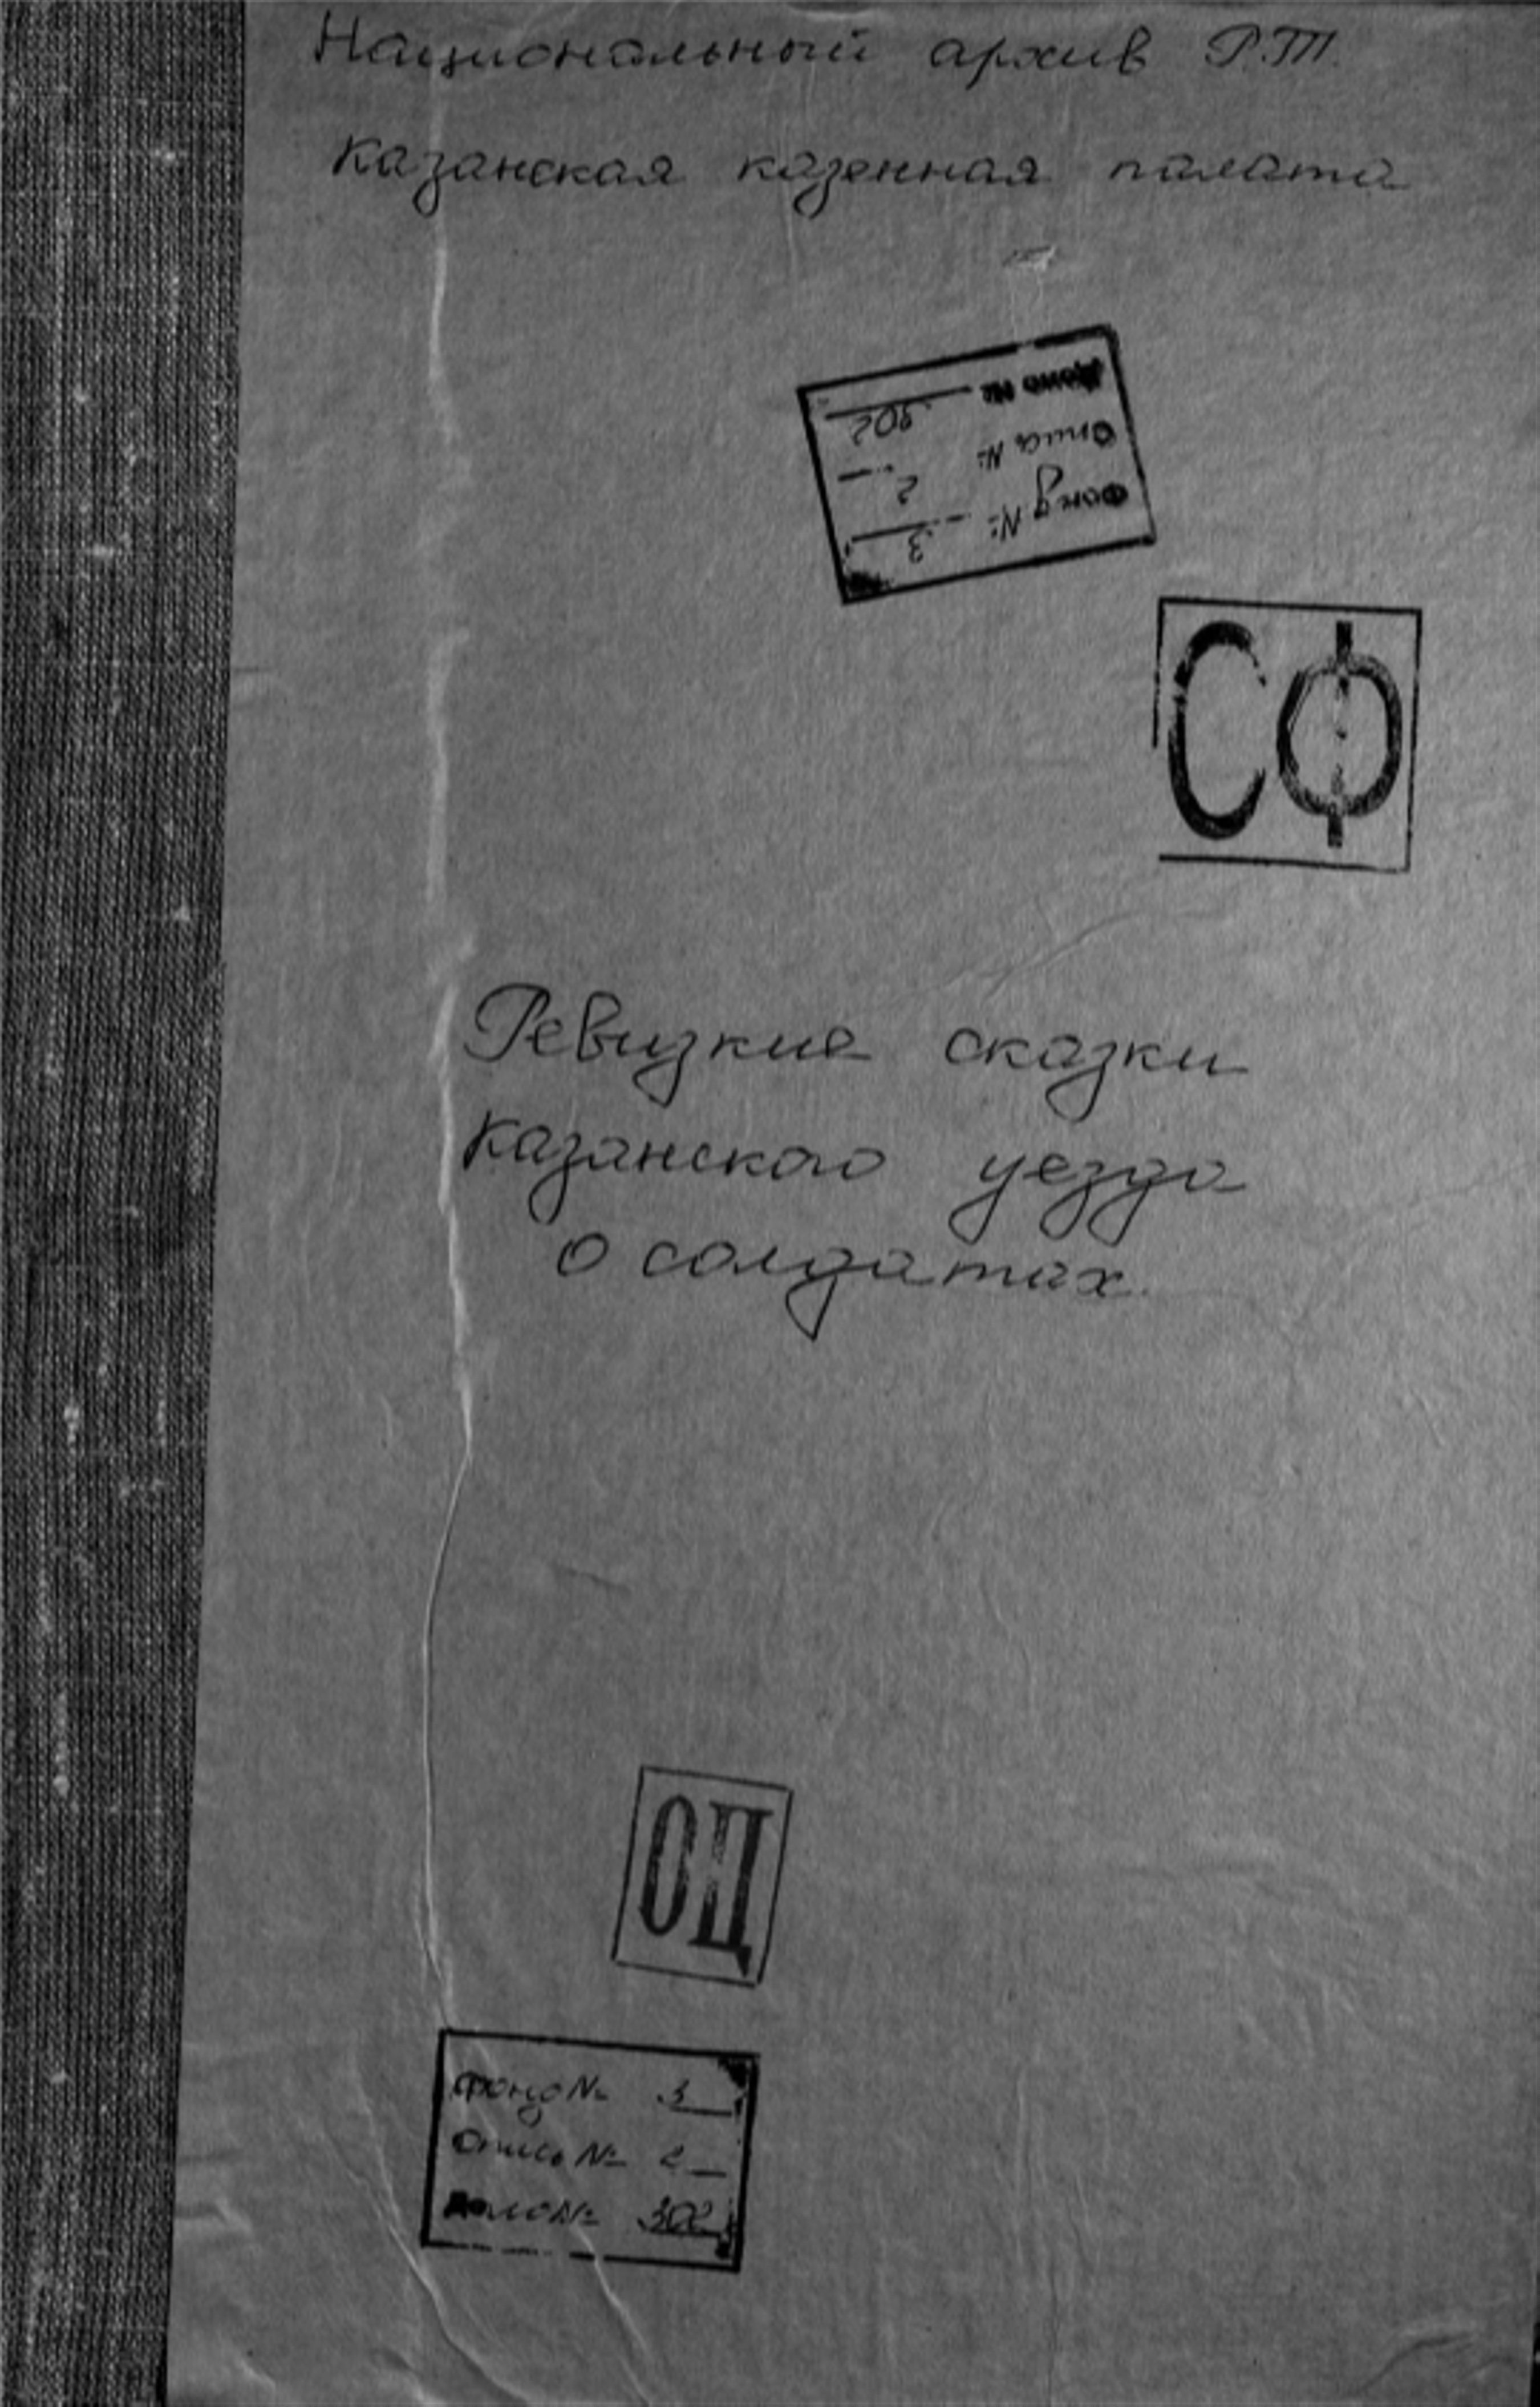 Национальный архив Р.Т.
Казанская казенная палата
Фонд № 3
Опись № 2
Дело № 302
СФ
Ревизкие сказки
Казанского уезда
о солдатах.
ОЦ
Фонд № 3
Опись № 2
Дело № 302